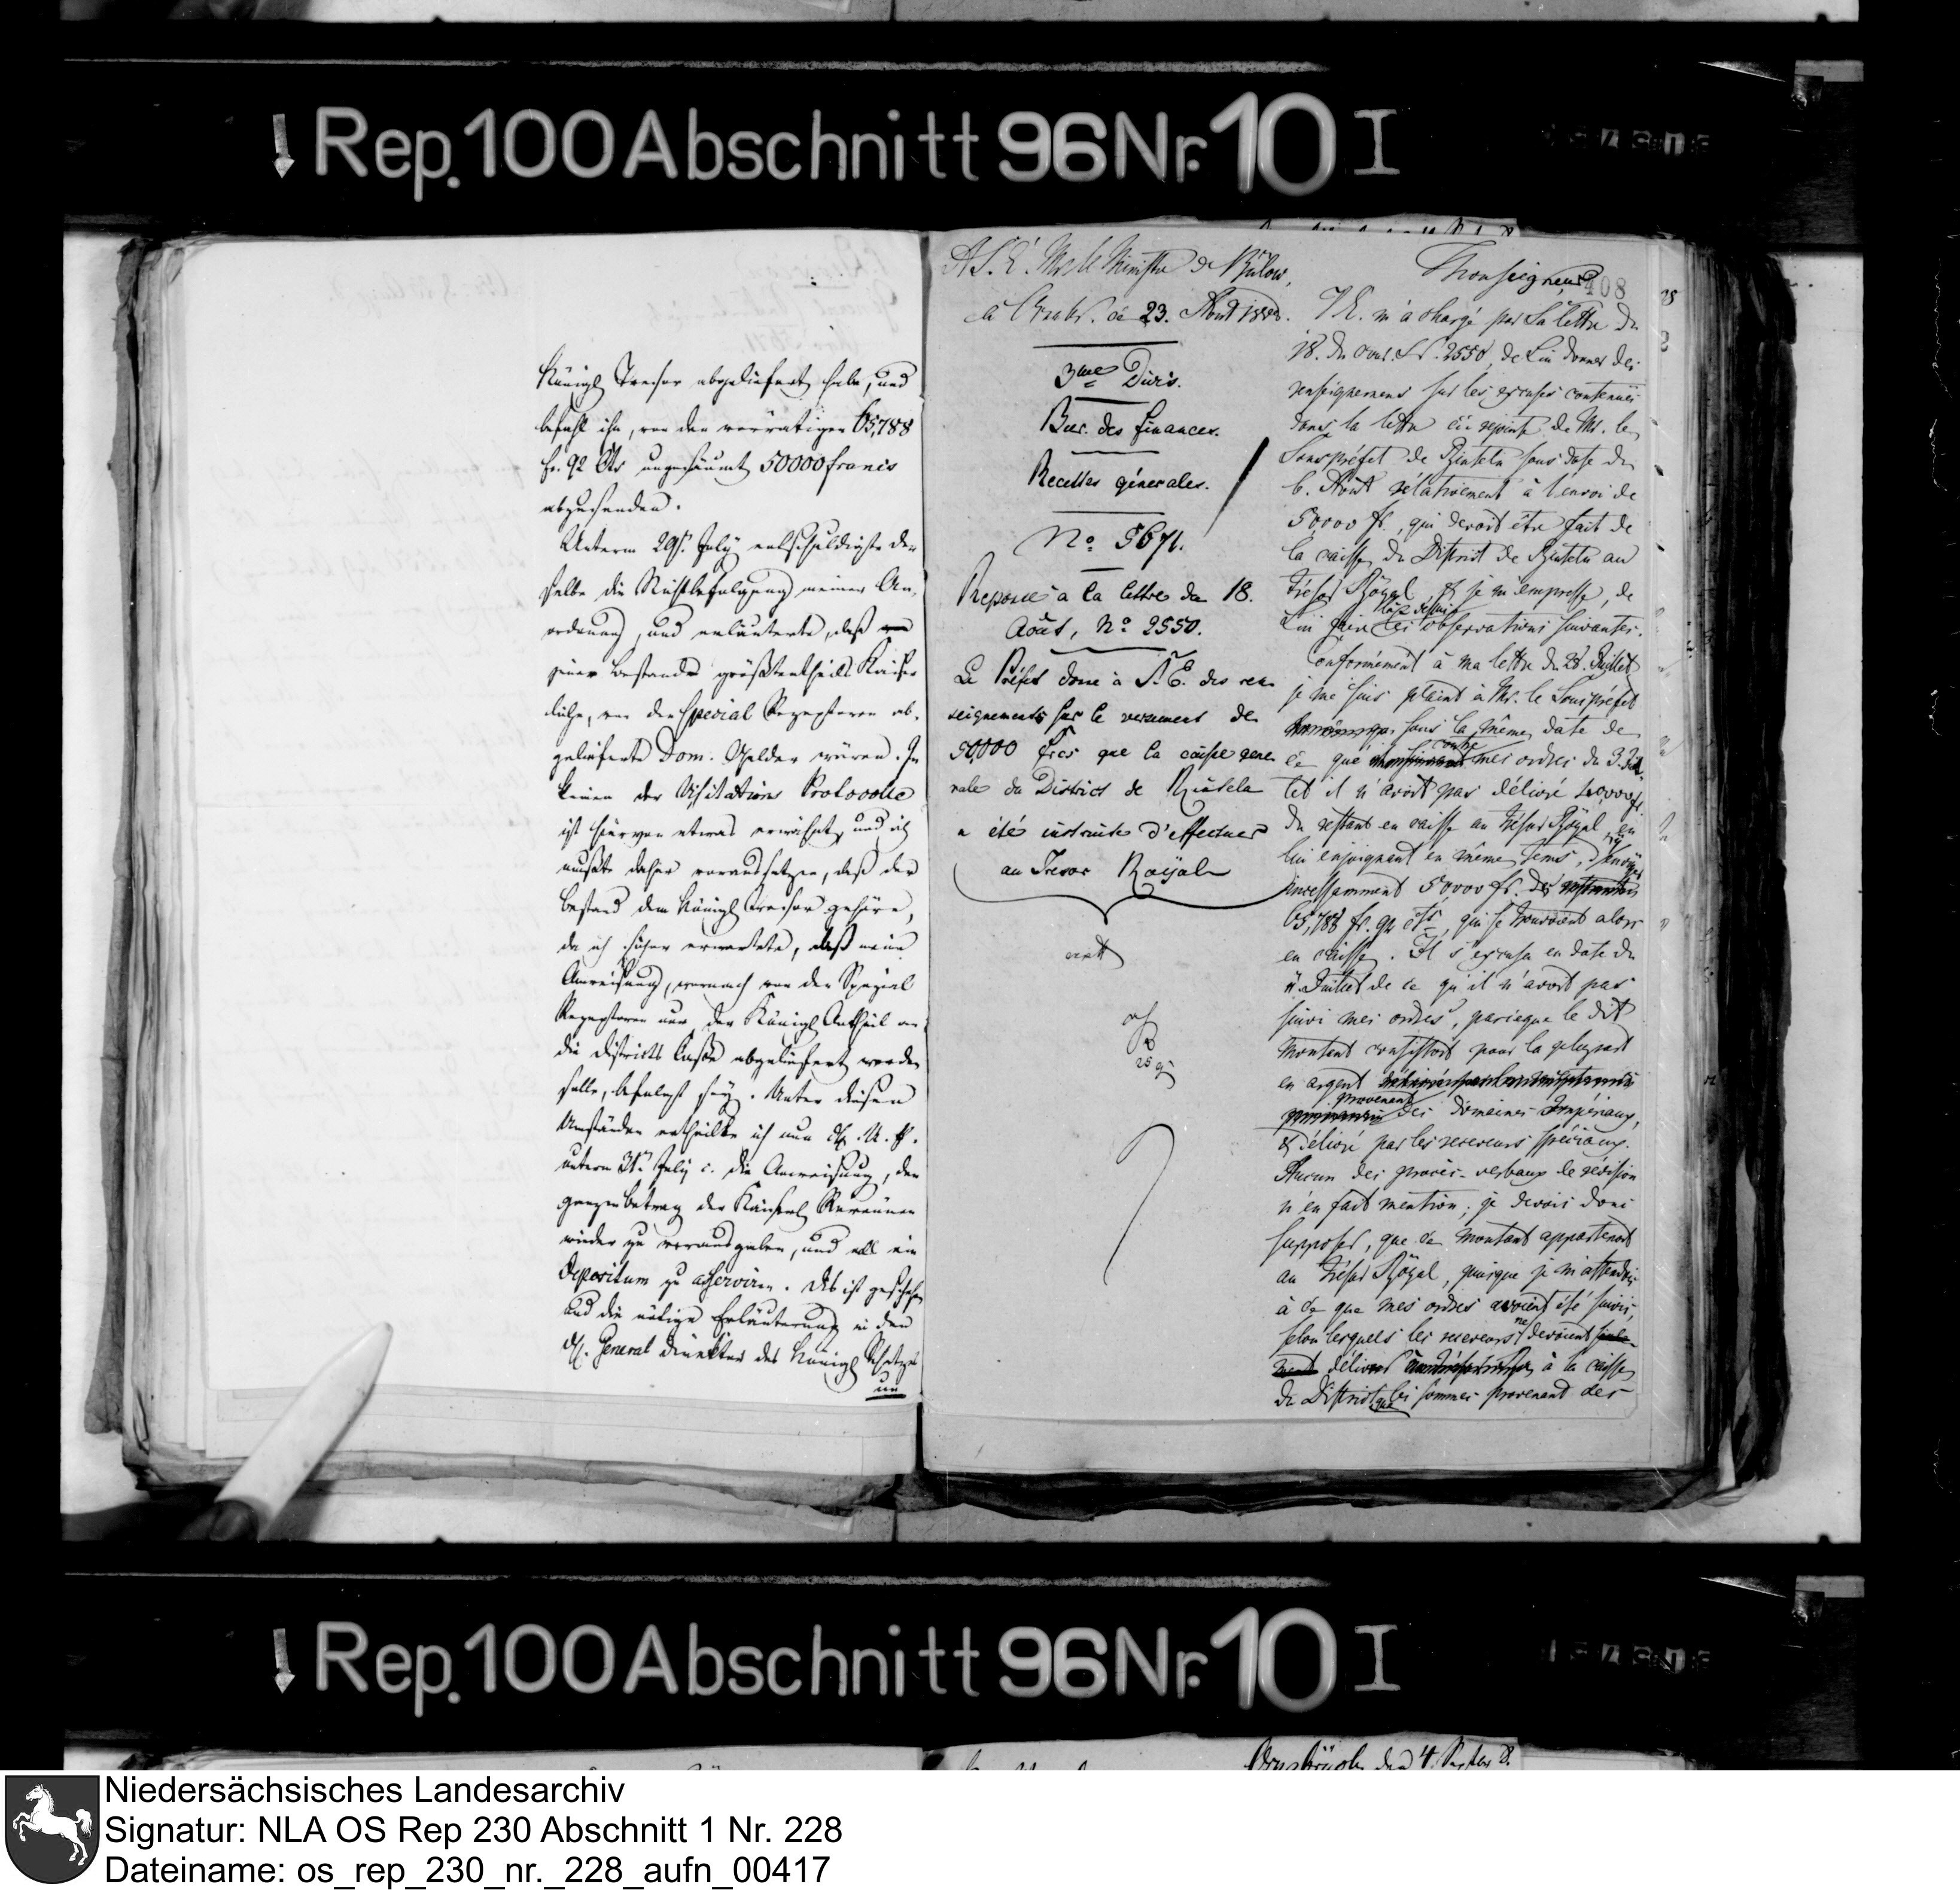 Rep. 100 Abschnitt 96 Nr. 10 I
Königl Tresor abgeliefert habe, und
befahl ihm, von den vorrätigen 65,788
fr. 92 Cts ungesäumt 50000 francs
abzusenden.
Unterm 29st. July entschuldigte der
selbe die Nichtbefolgung meiner An-
ordnung, und erläuterte, daß
seine Bestände größtentheils Kaiser
liche, von den Special Rezeptoren ab-
gelieferte Dom. Gelder wären. In
keinem der Visitations Protocolle
ist hiervon etwas erwähnt, und ich
mußte daher voraussetzen, daß der
Bestand dem Königl Tresor gehöre,
da ich sicher erwartete, daß meine
Anweisung, wornach von den Spezial
Rezeptoren nur der Königl Antheil an
die Districts Casse abgeliefert werden
solle, befolgt sey. Unter diesen
Umständen ertheilte ich nun
unterm 31st. July c. die Anweisung, den
ganzen Betrag der Kaiserl Revenüen
wieder zu verausgaben, und als ein
Depositum zu asserviren. Dies ist geschehen
und die nötige Erläuterung in den
General Direktor des Königl Schatzes
un
A S. E. Mr le Ministre de Bülow,
à Osnabr. ce 23. Août 1808.
3me Divis.
Bur. des finances.
Recettes générales.
No. 5671.
Reponse à la lettre du 18.
Août, No. 2550.
Le Préfet donne à S. E. des ren
seignements sur le versement de
50,000 frcs que la caisse gene
rale du District de Rinteln
a été instruite d'effectuer
au Tresor Royal
Monseigneur
408
V.E. m'a chargé par Sa lettre du
18. du cour. No. 2550, de Lui donner des
renseignemens sur les excuses contenues
dans la lettre ci-jointe de Mr. le
Souspréfet de Rinteln sous date du
6. Août relativement à l'envoi de
50000 fr., qui devoit être fait de
la caisse du District de Rinteln au
Trésor Royal, et je m'empresse, de
Lui faire les observations suivantes.
Conformément à ma lettre du 28. Juillet
je me suis plaint à Mr. le Souspréfet
sous la même date de
ce que contre mes ordres du 3. Juil
let il n'avoit pas délivré 40,000 fr.
du restant en caisse au Trésor Royal, en
lui enjoignant en même tems, d'y envoyer
incessamment 50000 fr. des
65,788 fr. 92 cts, qui se trouvoient alors
en caisse. Il s'excusa en date du
Juillet de ce qu'il n'avoit pas
suivi mes ordres, parceque le dit
montant consistoit pour la plupart
en argent
provenant des Domaines Impériaux,
et délivré par les receveurs spéciaux.
Aucun des procès-verbaux de révision
n'en fait mention; je devois donc
supposer, que ce montant appartenoit
au Trésor Royal, puisque je m'attendois
à ce que mes ordres avoient été suivis,
selon lesquels les receveurs ne devoient
délivrer à la caisse
du District que les sommes provenant des
Rep. 100 Abschnitt 96 Nr. 10 I
Osnabrück den 4. Septbr 8.
Niedersächsisches Landesarchiv
Signatur: NLA OS Rep 230 Abschnitt 1 Nr. 228
Dateiname: os_rep_230_nr._228_aufn_00417